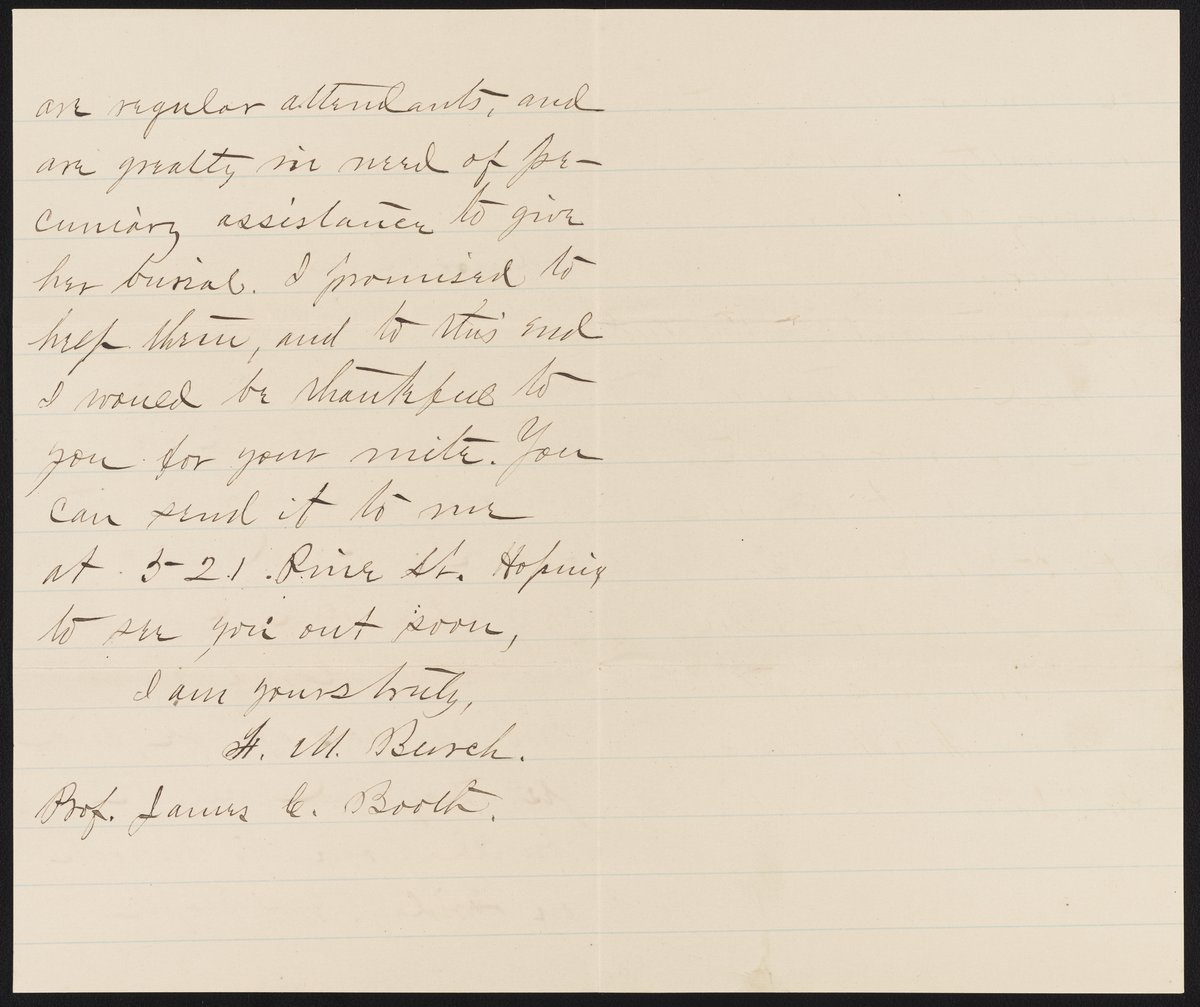 are regular attendants, and
are greatly in need of pe-
cuniary assistance to give
her burial. I promised to
help them, and to this end
I would be thankful to
you for your mite. You
can send it to me
at 521 Pine St. Hoping
to see you out soon,
I am yours truly,
H. M. Burch.
Prof. James C. Booth.